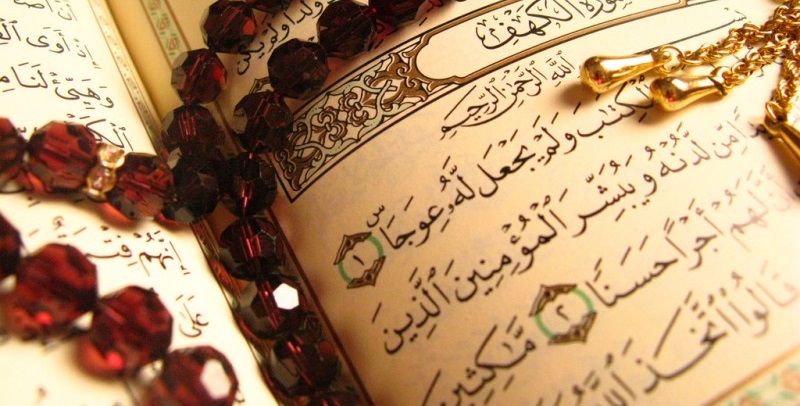 سورة الكهف
ٱللَّهِ ٱلرَّحْمَٰنِ ٱلرَّحِيمِ
ٱلْكِتَٰبَ وَلَمْ يَجْعَل لَّهُۥ عِوَجَاۜ ١
مِّن لَّدُنْهُ وَيُبَشِّرَ ٱلْمُؤْمِنِينَ ٱلَّذِينَ
لَهُمْ أَجْرًا حَسَنًا ٢ مَّٰكِثِينَ
قَالُوا۟ ٱتَّخَذَ ٱللَّهُ
إِذْ أَوَى
وَهَيِّئْ لَنَا
إِنَّهُمْ فِتْيَةٌ
عَلَىٰ